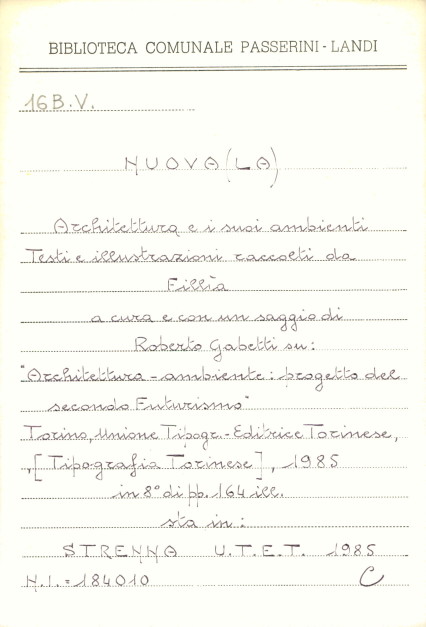 BIBLIOTECA COMUNALE PASSERINI - LANDI
16 B.V.
NUOVA (LA)
Architettura e i suoi ambienti
Testi e illustrazioni raccolti da
Fillia
a cura e con un saggio di
Roberto Gabetti su:
"Architettura - ambiente: progetto del
secondo Futurismo"
Torino, Unione Tipogr.-Editrice Torinese,
,[Tipografia Torinese], 1985
in 8° di pp. 164 ill.
sta in:
STRENNA U.T.E.T. 1985
N.I. = 184010 C